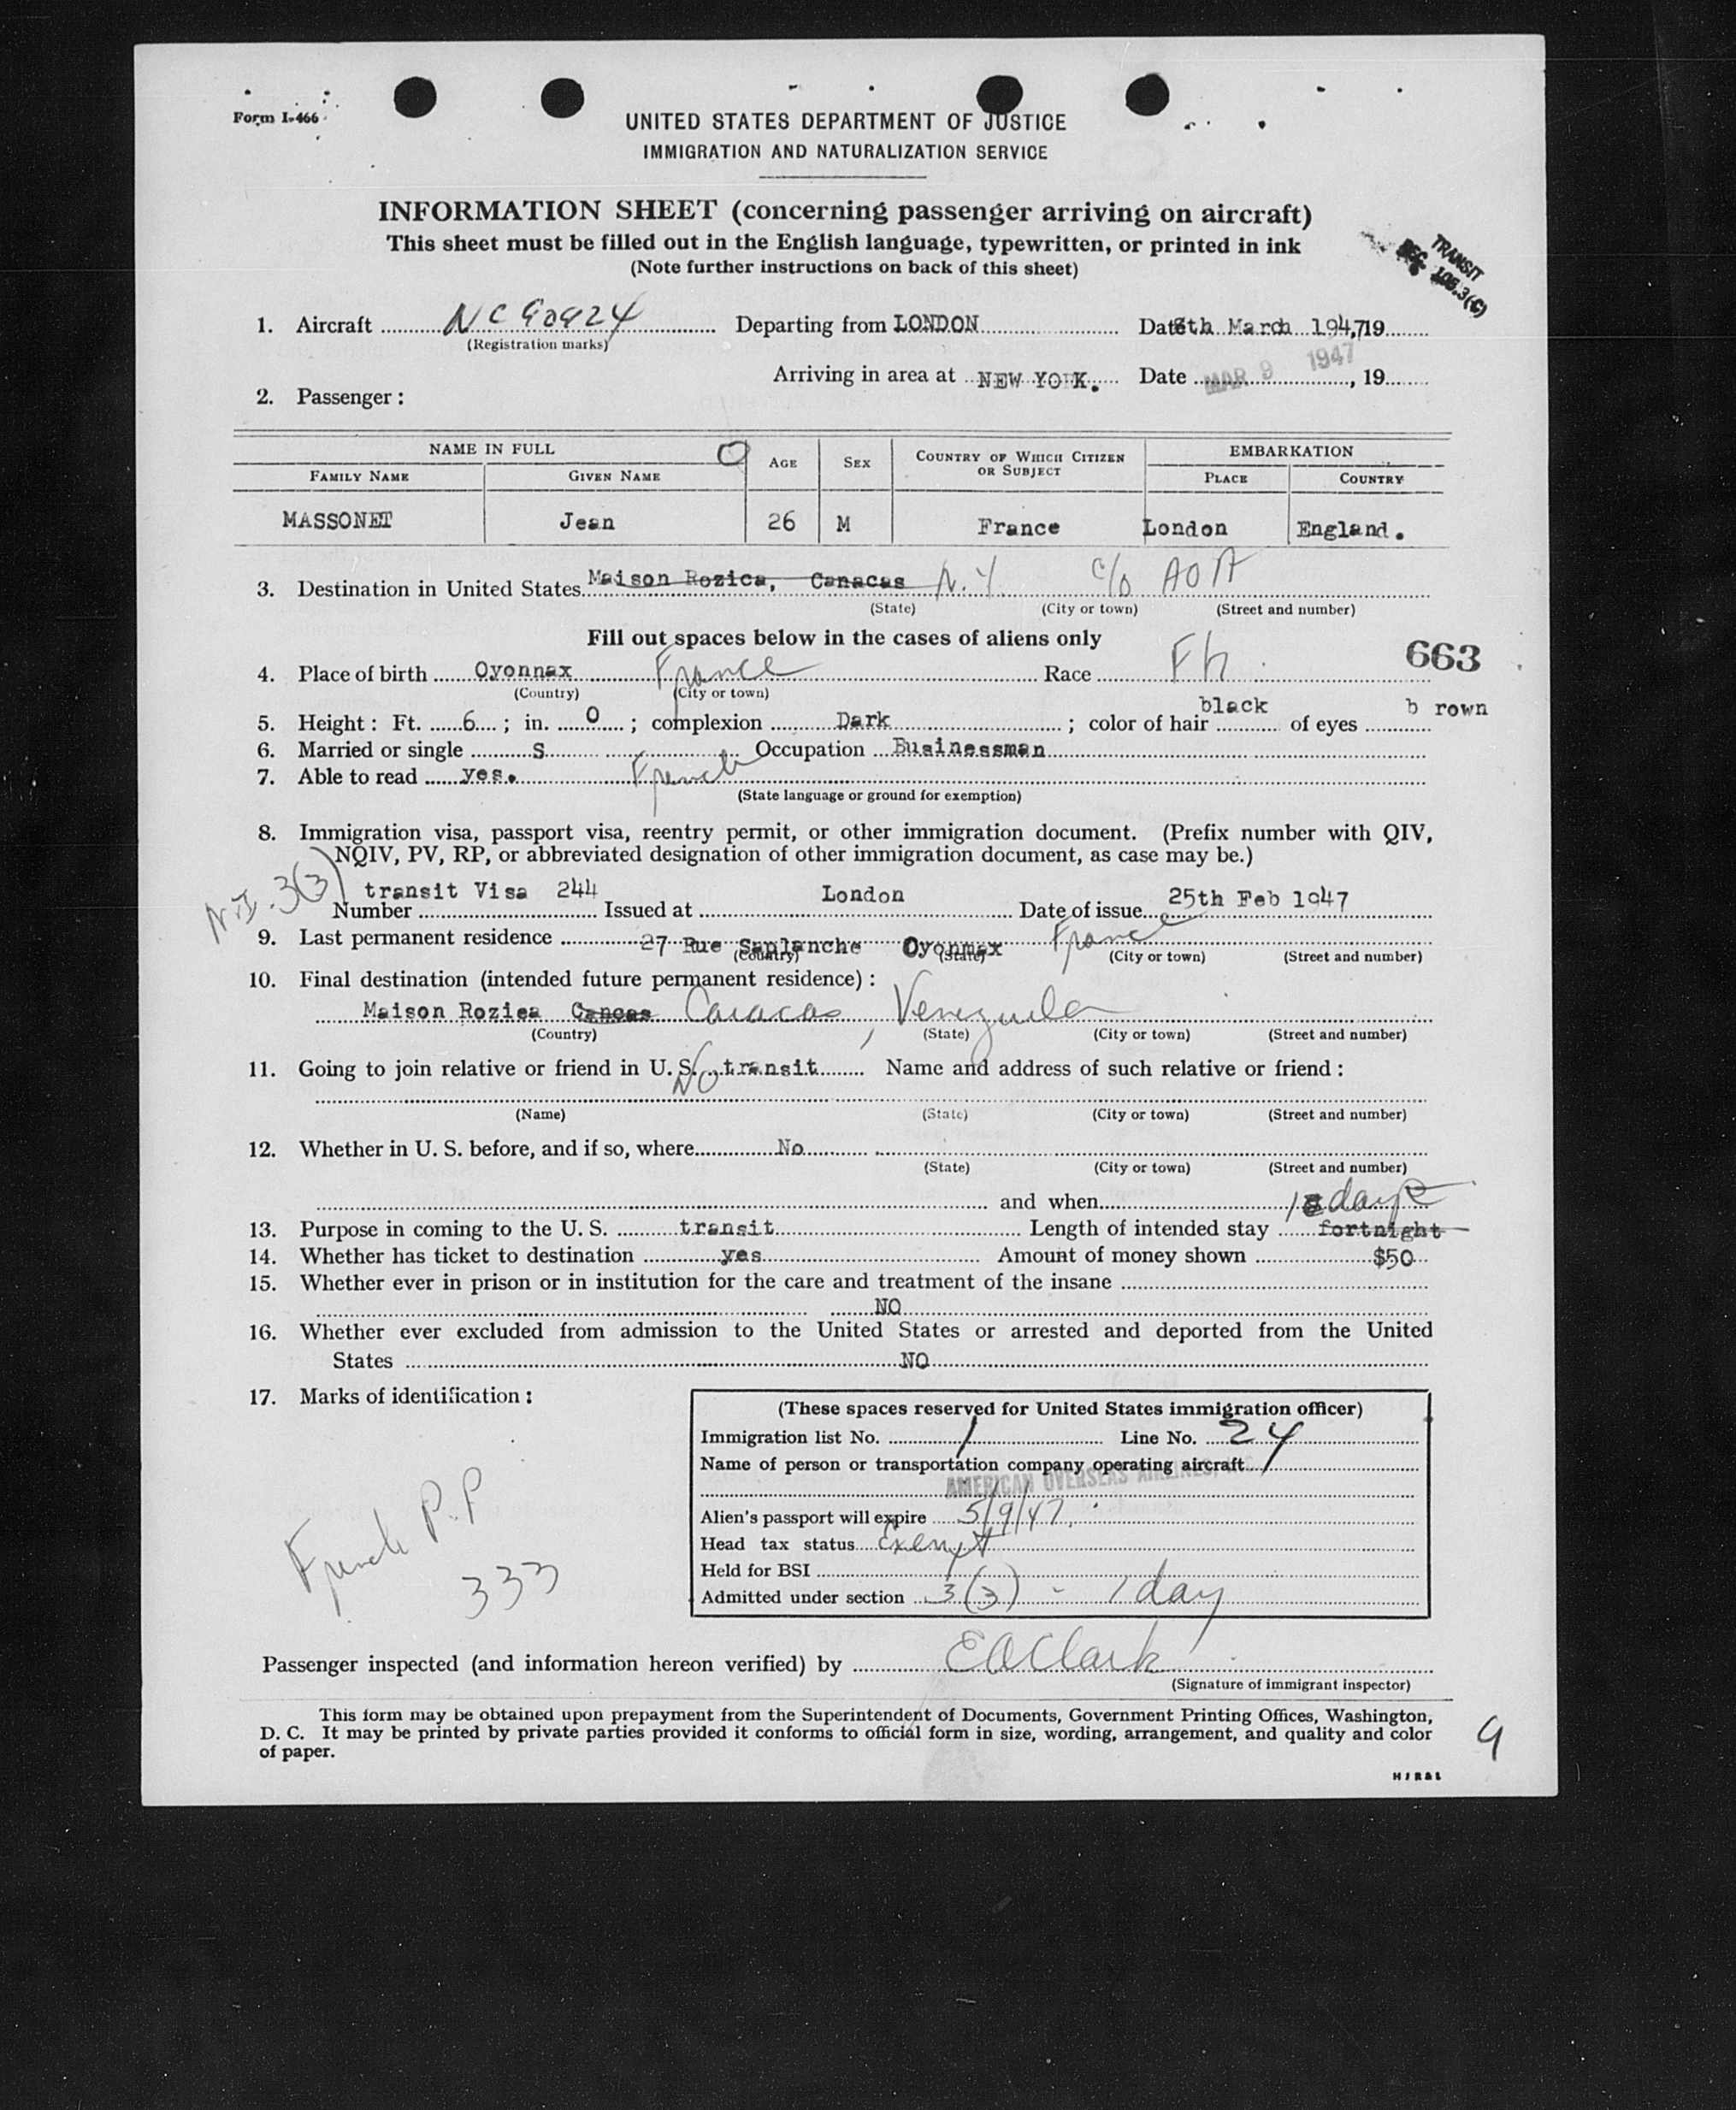 Form I-466
UNITED STATES DEPARTMENT OF JUSTICE
IMMIGRATION AND NATURALIZATION SERVICE
INFORMATION SHEET (concerning passenger arriving on aircraft)
This sheet must be filled out in the English language, typewritten, or printed in ink
(Note further instructions on back of this sheet)
TRANSIT
SEC. 106.3(C)
1. Aircraft NC90924 Departing from LONDON Date 8th March 1947, 19
(Registration marks)
Arriving in area at NEW YO K. Date MAR 9 1947, 19
2. Passenger:
NAME IN FULL AGE SEX COUNTRY OF WHICH CITIZEN OR SUBJECT EMBARKATION
FAMILY NAME GIVEN NAME PLACE COUNTRY
MASSONET Jean 26 M France London England.
3. Destination in United States Maison Rozica, Canacas N.Y. c/o AOA
(State) (City or town) (Street and number)
Fill out spaces below in the cases of aliens only
663
4. Place of birth Oyonnax France Race Fh
(Country) (City or town)
5. Height: Ft. 6; in. 0; complexion Dark; color of hair black of eyes b rown
6. Married or single S Occupation Businessman
7. Able to read yes. French
(State language or ground for exemption)
8. Immigration visa, passport visa, reentry permit, or other immigration document. (Prefix number with QIV,
NQIV, PV, RP, or abbreviated designation of other immigration document, as case may be.)
N.I. 3(3)
transit Visa 244 London 25th Feb 1947
Number Issued at Date of issue
9. Last permanent residence 27 Rue Saplanche Oyonmax France
(Country) (State) (City or town) (Street and number)
10. Final destination (intended future permanent residence):
Maison Roziea Cancas Caracas, Venezuela
(Country) (State) (City or town) (Street and number)
11. Going to join relative or friend in U. S. No transit Name and address of such relative or friend:
(Name) (State) (City or town) (Street and number)
12. Whether in U. S. before, and if so, where No
(State) (City or town) (Street and number)
and when
1 day
13. Purpose in coming to the U. S. transit Length of intended stay fortnight
14. Whether has ticket to destination yes Amount of money shown $50
15. Whether ever in prison or in institution for the care and treatment of the insane
NO
16. Whether ever excluded from admission to the United States or arrested and deported from the United
States NO
17. Marks of identification:
French P.P
333
(These spaces reserved for United States immigration officer)
Immigration list No. 1 Line No. 24
Name of person or transportation company operating aircraft
AMERICAN OVERSEAS AIRLINES, INC.
Alien's passport will expire 5/9/47.
Head tax status Exempt
Held for BSI
Admitted under section 3(3) - 1 day
Passenger inspected (and information hereon verified) by E A Clark
(Signature of immigrant inspector)
This form may be obtained upon prepayment from the Superintendent of Documents, Government Printing Offices, Washington,
D. C. It may be printed by private parties provided it conforms to official form in size, wording, arrangement, and quality and color
of paper.
9